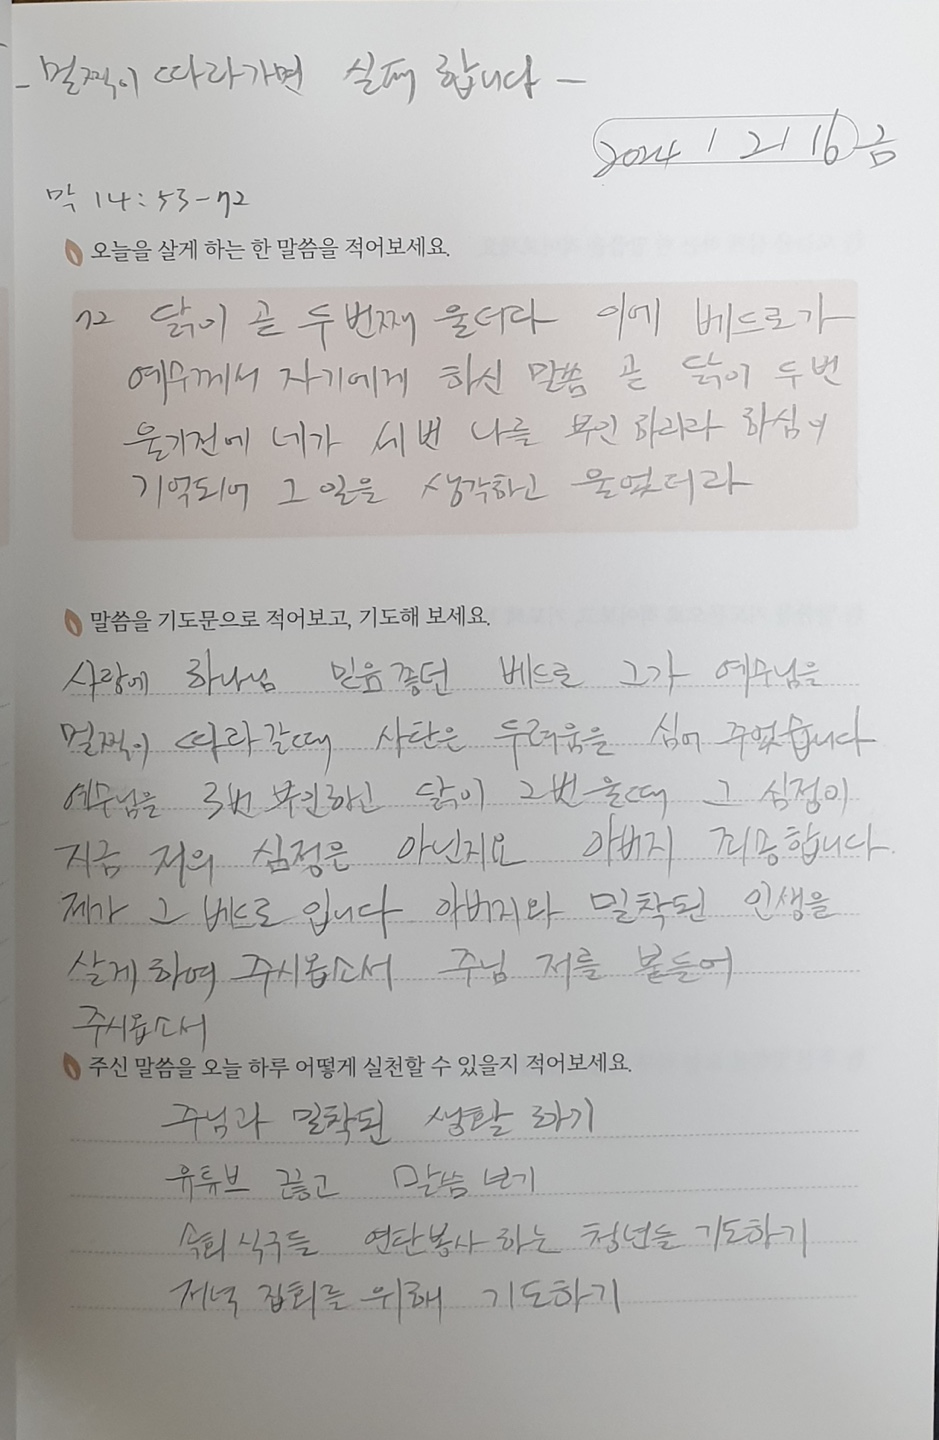 - 멀찍이 따라가면 실패 합니다 -
2024 / 2/ 16 금
막 14:53-72
오늘을 살게 하는 한 말씀을 적어보세요.
72 닭이 곧 두번째 울더라 이에 베드로가
예수께서 자기에게 하신 말씀 곧 닭이 두번
울기전에 네가 세번 나를 부인하리라 하심이
기억되어 그 일을 생각하고 울었더라
말씀을 기도문으로 적어보고, 기도해 보세요.
사랑에 하나님 믿음좋던 베드로 그가 예수님을
멀찍이 따라갈때 사단은 두려움을 심어 주었습니다
예수님을 3번 부인하신 닭이 2번 울때 그 심정이
지금 저의 심정은 아닌지요 아버지 죄송합니다.
제가 그 베드로 입니다 아버지와 밀착된 인생을
살게 하여 주시옵소서 주님 저를 붙들어
주시옵소서
주신 말씀을 오늘 하루 어떻게 실천할 수 있을지 적어보세요.
주님과 밀착된 생활 하기
유튜브 끊고 말씀 보기
속회 식구들 연탄봉사 하는 청년들 기도하기
저녁 집회를 위해 기도하기